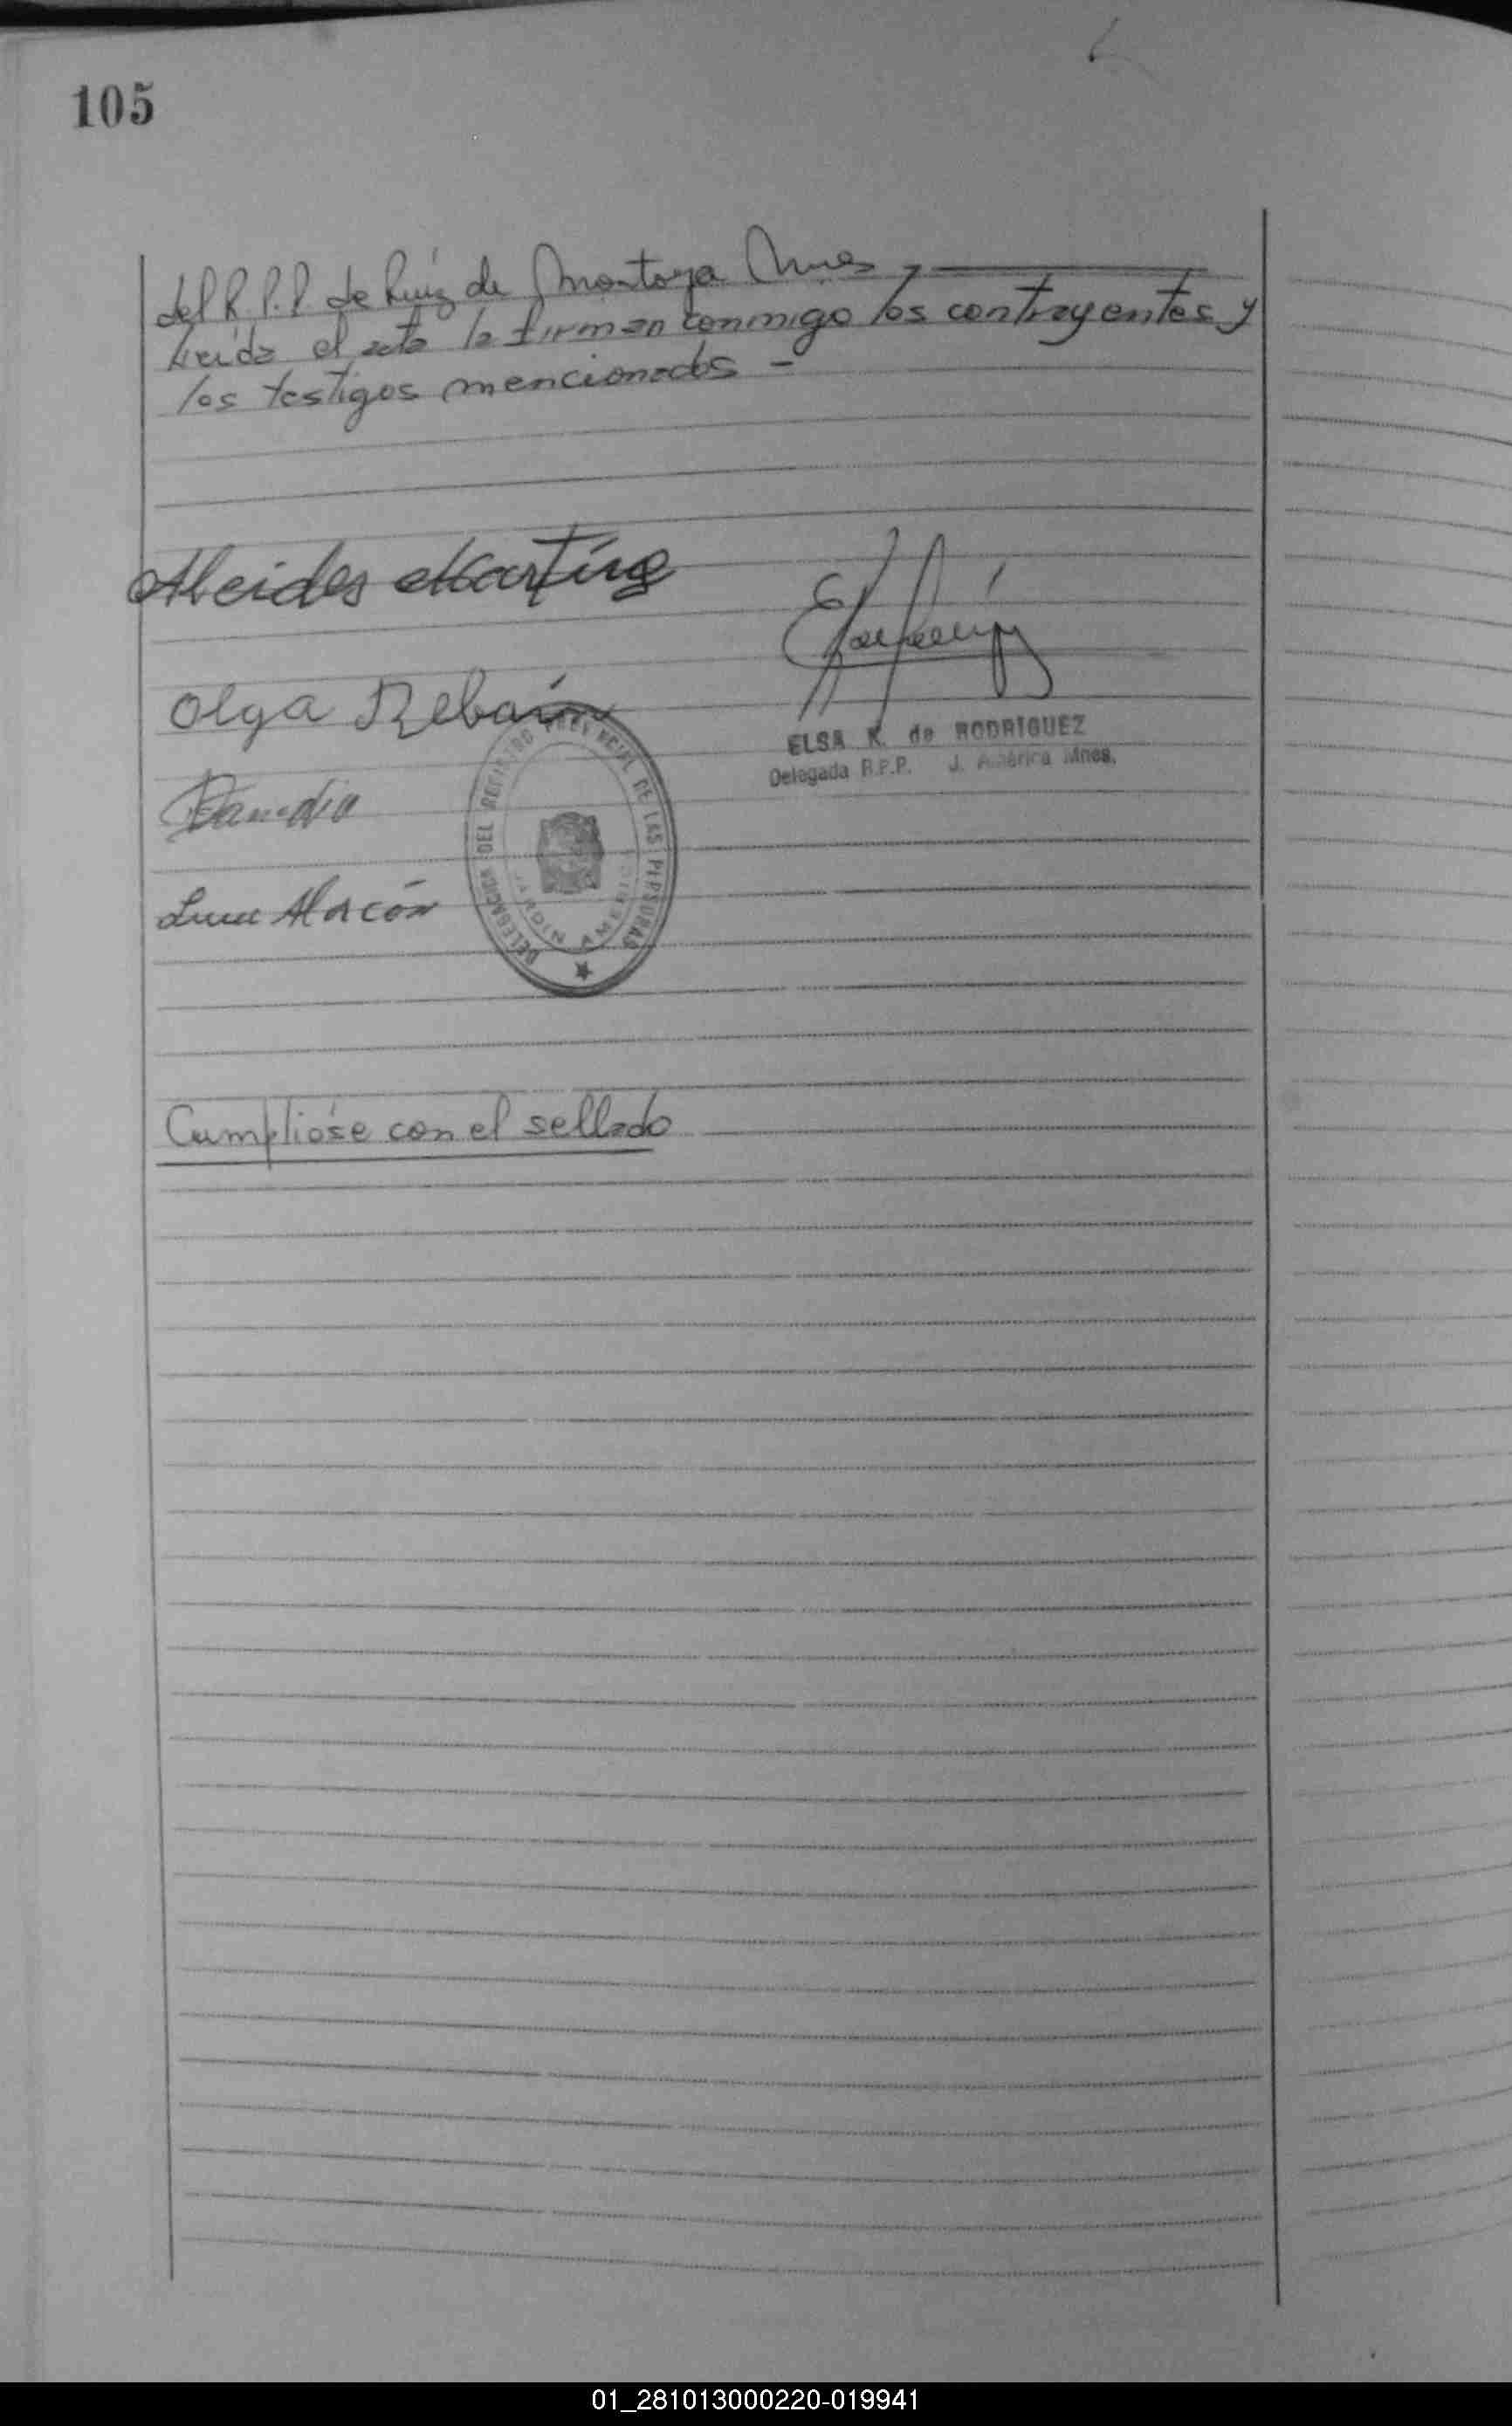 105
del R.P.P. de Ruíz de Montoya Mnes,
Leída el acta la firman conmigo los contrayentes y
los testigos mencionados -
Alcides Martins
Olga
ELSA K. de RODRIGUEZ
Delegada R.P.P. J. América Mnes.
DELEGACION DEL REGISTRO PROVINCIAL DE LAS PERSONAS
JARDIN AMERICA
Alarcón
Cumplióse con el sellado
01_281013000220-019941